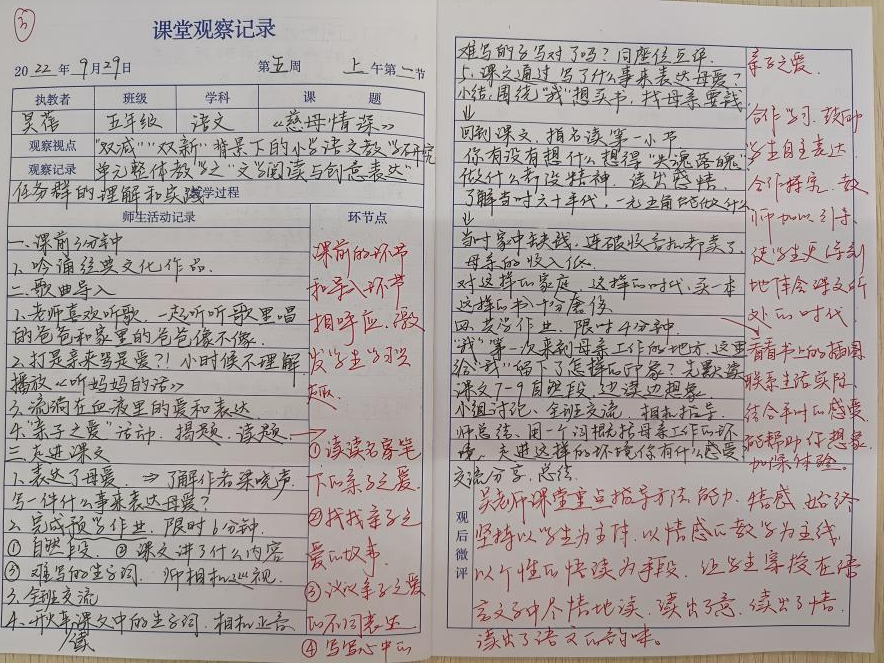 课堂观察记录
2022年9月29日 第五周 上午第一节
执教者 班级 学科 课题
吴蓓 五年级 语文 《慈母情深》
观察视点 "双减""双新"背景下的小学语文教学研究
观察记录 单元整体教学之"文学阅读与创意表达"
任务群的理解和实践 教学过程
师生活动记录 环节点
一、课前3分钟
1、吟诵经典文化作品.
二、歌曲导入
1、老师喜欢听歌,一起听听歌里唱
的爸爸和家里的爸爸像不像.
2、打是亲来骂是爱?!小时候不理解
播放《听妈妈的话》
3、流淌在血液里的爱和表达
4、"亲子之爱"活动,揭题、读题
三、走进课文
1、表达了母爱. ⇒了解作者梁晓声.
写一件什么事来表达母爱?
2、完成预学作业,限时6分钟.
①自然段. ②课文讲了什么内容
③难写的生字词. 师相机巡视.
3、全班交流
4、开火车读课文中的生字词,相机正音
课前的环节
和导入环节
相呼应,激
发学生学习兴
趣.
①读读名家笔
下的亲子之爱.
②找找亲子之
爱的故事.
③议议亲子之爱
的不同表达
④写写心中的
难写的字写对了吗?同座位互评.
5、课文通过写了什么事来表达母爱?
小结:围绕"我"想买书,找母亲要钱
业
回到课文,指名读第一小节
你有没有想什么想得"失魂落魄"
做什么都没精神,读出感情.
了解当时六十年代,一元五角能做什么
业
当时家中缺钱,连破收音机都卖了.
母亲的收入低.
对这样的家庭,这样的时代,买一本
这样的书十分奢侈
四、共学作业,限时4分钟
"我"第一次来到母亲工作的地方,这里
给"我"留下了怎样的印象?先默读
课文7-9自然段,边读边想象
小组讨论、全班交流,相机指导.
师总结:用一个词概括母亲工作的环
境,走进这样的环境你有什么感受
交流分享,总结.
亲子之爱.
合作学习,鼓励
学生自主表达.
合作探究,教
师加以引导,
使学生更深刻
地体会课文所
处的时代
看看书上的插图
联系生活实际
结合平时的感受
能帮助你想象,
加深体验。
观后微评
吴老师课堂重点指导方法能力,情感,始终
坚持以学生为主体,以情感的教学为主线,
以个性的悟读为手段,让学生穿梭在语
言文字中尽情地读,读出了意,读出了情,
读出了语文的韵味。